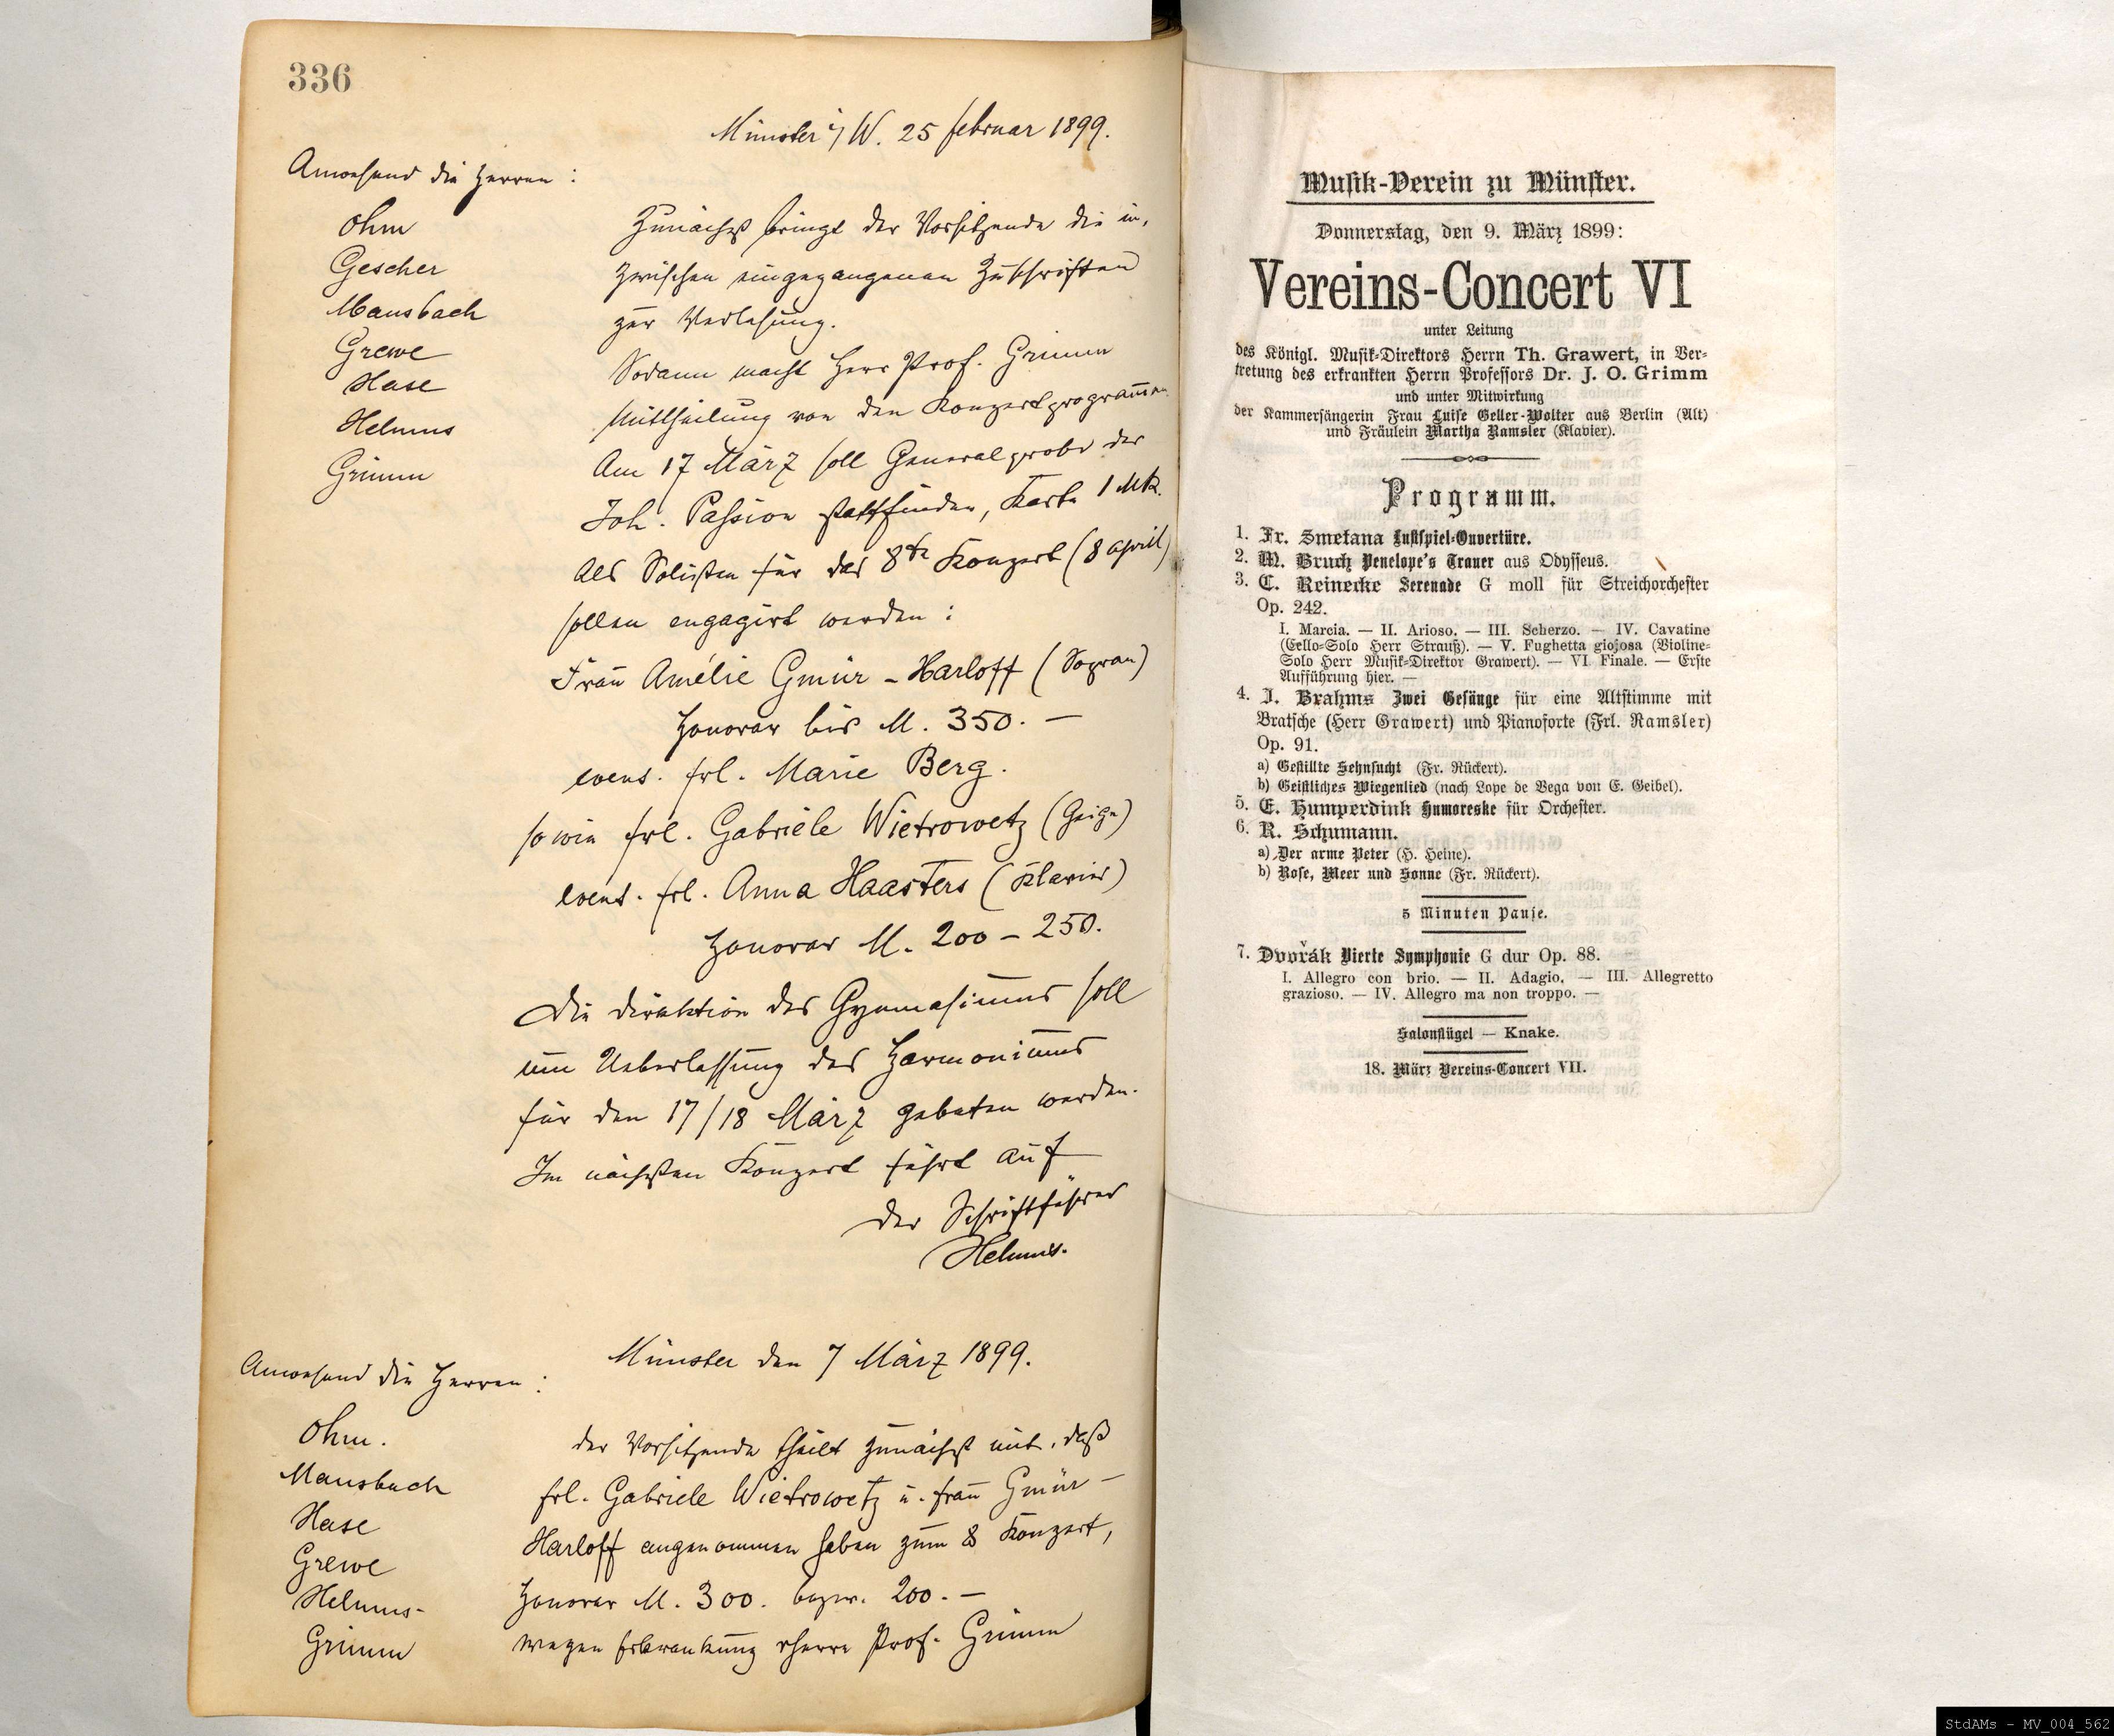 336
Münster i/W. 25 Februar 1899.
Anwesend die Herren:
Ohm
Gescher
Mausbach
Grewe
Hase
Helmus
Grimm
Zunächst bringt der Vorsitzende die in-
zwischen eingegangenen Zuschriften
zur Verlesung.
Sodann macht Herr Prof. Grimm
Mittheilung von den Konzertprogrammen.
Am 17 März soll Generalprobe der
Joh. Passion stattfinden, Karte 1 Mk.
Als Solisten für das 8te Konzert (8 April)
sollen engagirt werden:
Frau Amélie Gmür-Harloff (Sopran)
Honorar bis M. 350.-
event. Frl. Marie Berg.
sowie Frl. Gabriele Wietrowetz (Geige)
event. Frl. Anna Haasters (Klavier)
Honorar M. 200-250.
Die Direktion des Gymnasiums soll
um Ueberlassung des Harmoniums
für den 17/18 März gebeten werden.
Im nächsten Konzert führt auf
Der Schriftführer
Helmus.
Münster den 7 März 1899.
Anwesend die Herren:
Ohm.
Mausbach
Hase
Grewe
Helmus-
Grimm
Der Vorsitzende theilt zunächst mit, daß
Frl. Gabriele Wietrowetz u. Frau Gmür-
Harloff angenommen haben zum 8 Konzert,
Honorar M. 300. bezw. 200.-
Wegen Erkrankung Herrn Prof. Grimm
Musik-Verein zu Münster.
Donnerstag, den 9. März 1899:
Vereins-Concert VI
unter Leitung
des Königl. Musik-Direktors Herrn Th. Grawert, in Ver-
tretung des erkrankten Herrn Professors Dr. J. O. Grimm
und unter Mitwirkung
der Kammersängerin Frau Luise Geller-Wolter aus Berlin (Alt)
und Fräulein Martha Ramsler (Klavier).
Programm.
1. Fr. Smetana Lustspiel-Ouvertüre.
2. M. Bruch Penelope's Trauer aus Odysseus.
3. C. Reinecke Serenade G moll für Streichorchester
Op. 242.
I. Marcia. — II. Arioso. — III. Scherzo. — IV. Cavatine
(Cello-Solo Herr Strauß). — V. Fughetta giojosa (Violine-
Solo Herr Musik-Direktor Grawert). — VI Finale. — Erste
Aufführung hier. —
4. J. Brahms Zwei Gesänge für eine Altstimme mit
Bratsche (Herr Grawert) und Pianoforte (Frl. Ramsler)
Op. 91.
a) Gestillte Sehnsucht (Fr. Rückert).
b) Geistliches Wiegenlied (nach Lope de Vega von E. Geibel).
5. E. Humperdink Humoreske für Orchester.
6. R. Schumann.
a) Der arme Peter (H. Heine).
b) Rose, Meer und Sonne (Fr. Rückert).
5 Minuten Pause.
7. Dvořák Vierte Symphonie G dur Op. 88.
I. Allegro con brio. — II. Adagio. — III. Allegretto
grazioso. — IV. Allegro ma non troppo. —
Salonflügel — Knake.
18. März Vereins-Concert VII.
StdAMs - MV_004_562